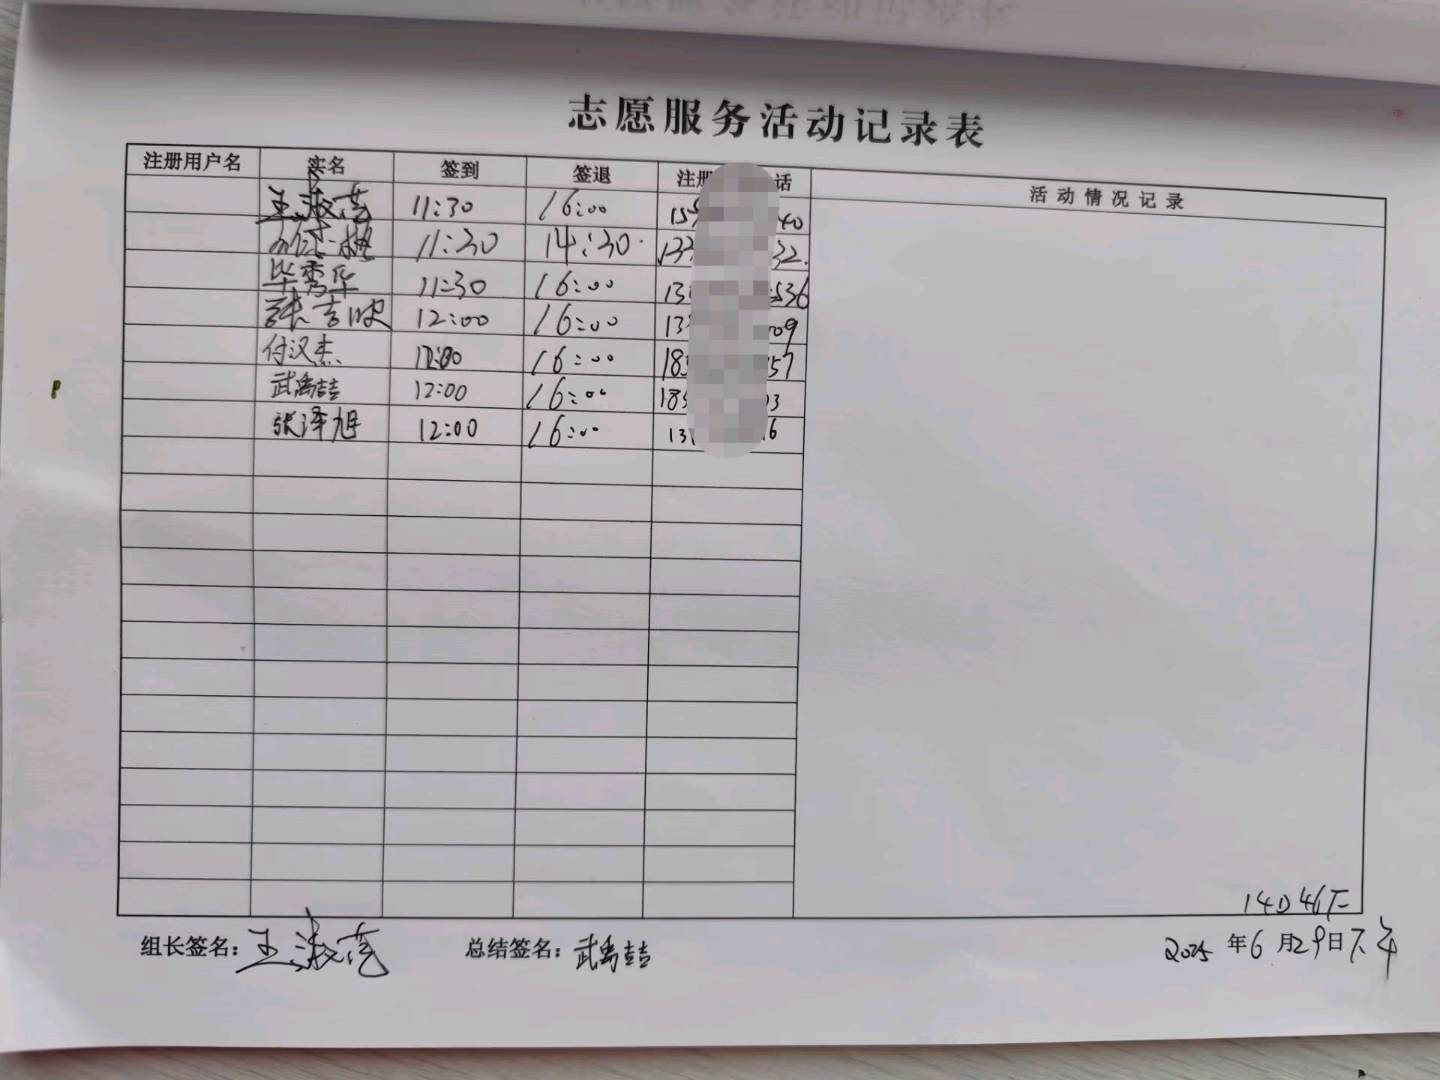 志愿服务活动记录表
注册用户名 实名 签到 签退 注册 话 活动情况记录
王淑范 11:30 16:00 15 40
11:30 14:30 133 32
毕秀华 11:30 16:00 13 536
张吉 12:00 16:00 13 09
付汉杰 12:00 16:00 183 57
武禹喆 12:00 16:00 189 03
张泽旭 12:00 16:00 13 6
组长签名:王淑范 总结签名:武禹喆 2025年6月29日下午